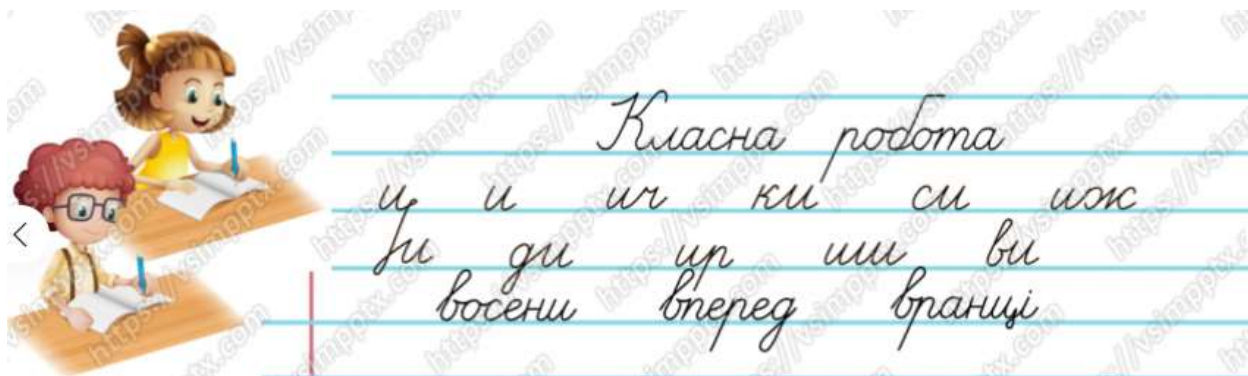 Класна робота
и и ич ки си иж
ди ир ши ви
восени вперед вранці
https://vsimpptx.com